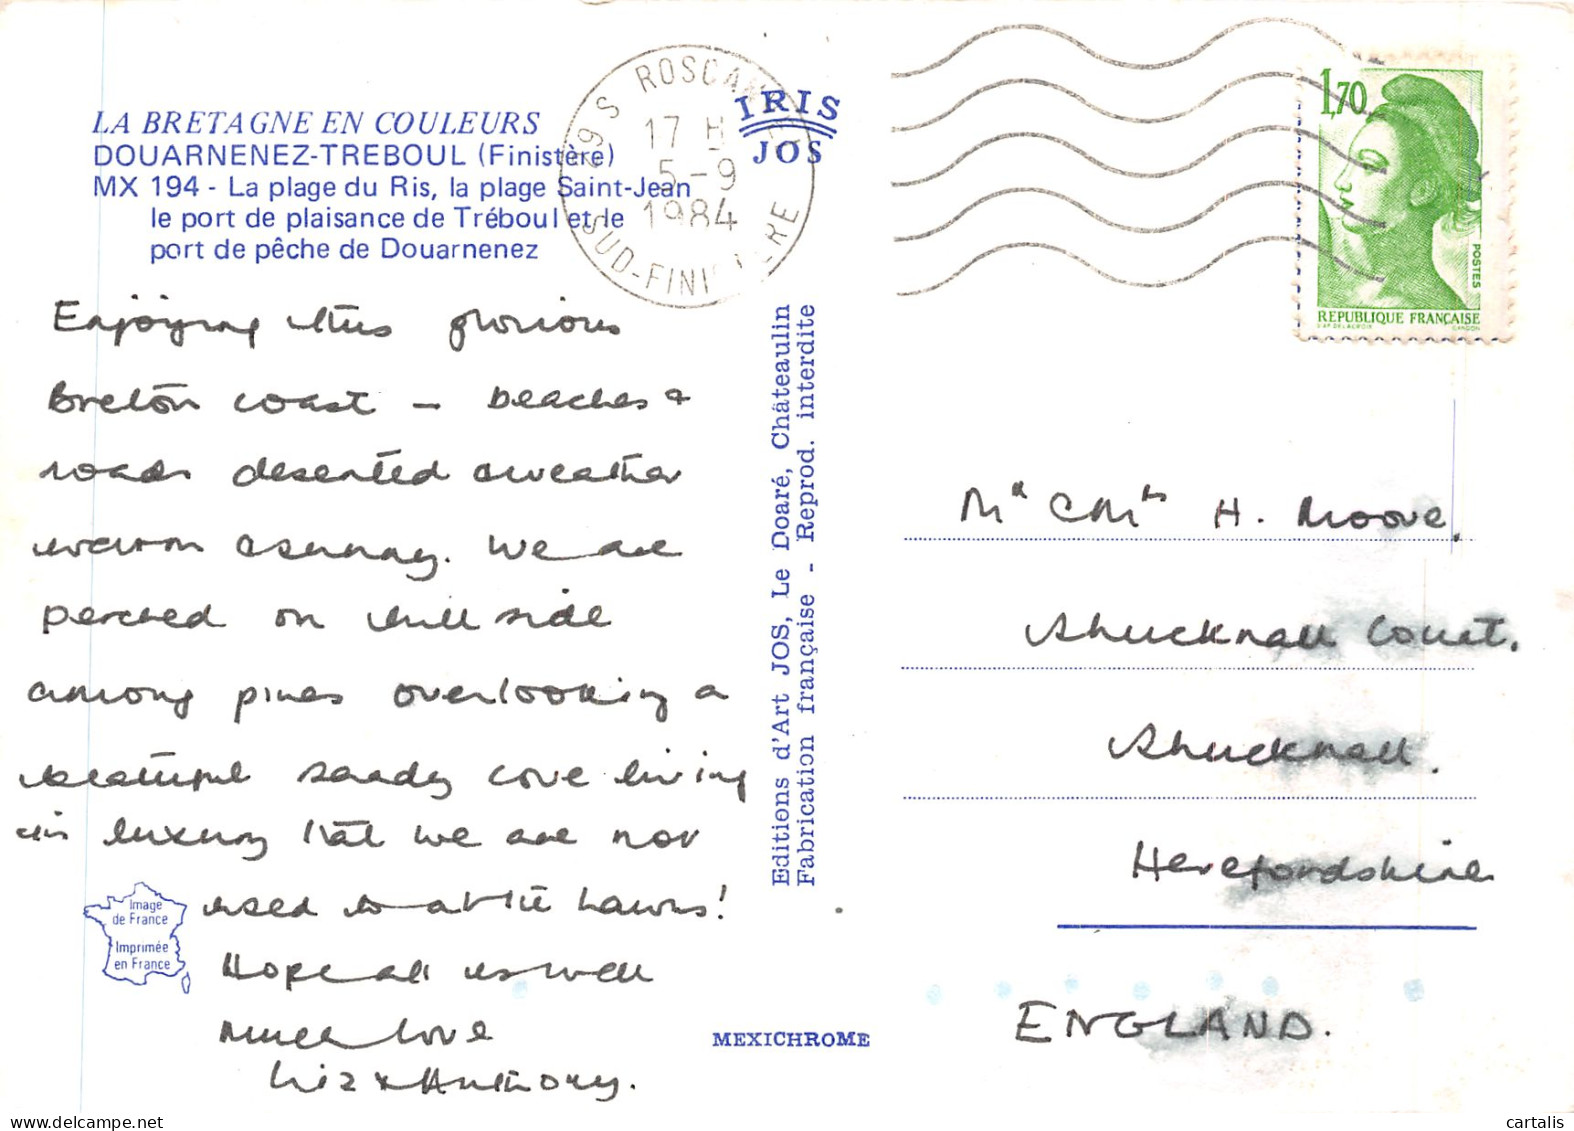 LA BRETAGNE EN COULEURS
DOUARNENEZ-TREBOUL (Finistère)
MX 194 - La plage du Ris, la plage Saint-Jean
le port de plaisance de Tréboul et le
port de pêche de Douarnenez
29 S ROSCAN
17 H
5-9
1984
SUD-FINISTERE
IRIS
JOS
1,70
POSTES
REPUBLIQUE FRANÇAISE
Enjoying this glorious
Breton coast – beaches &
roads deserted & weather
warm & sunny. We are
perched on hill side
among pines overlooking a
beautiful sandy cove living
in luxury that we are not
used to at
Hope all is well
Much love
Liz & Anthony.
Image
de France
Imprimée
en France
Editions d'Art JOS, Le Doaré, Châteaulin
Fabrication française - Reprod. interdite
MEXICHROME
Mr & Mrs H. Moore.
Shucknall Court.
Shucknall.
Herefordshire
ENGLAND.
cartalis.com